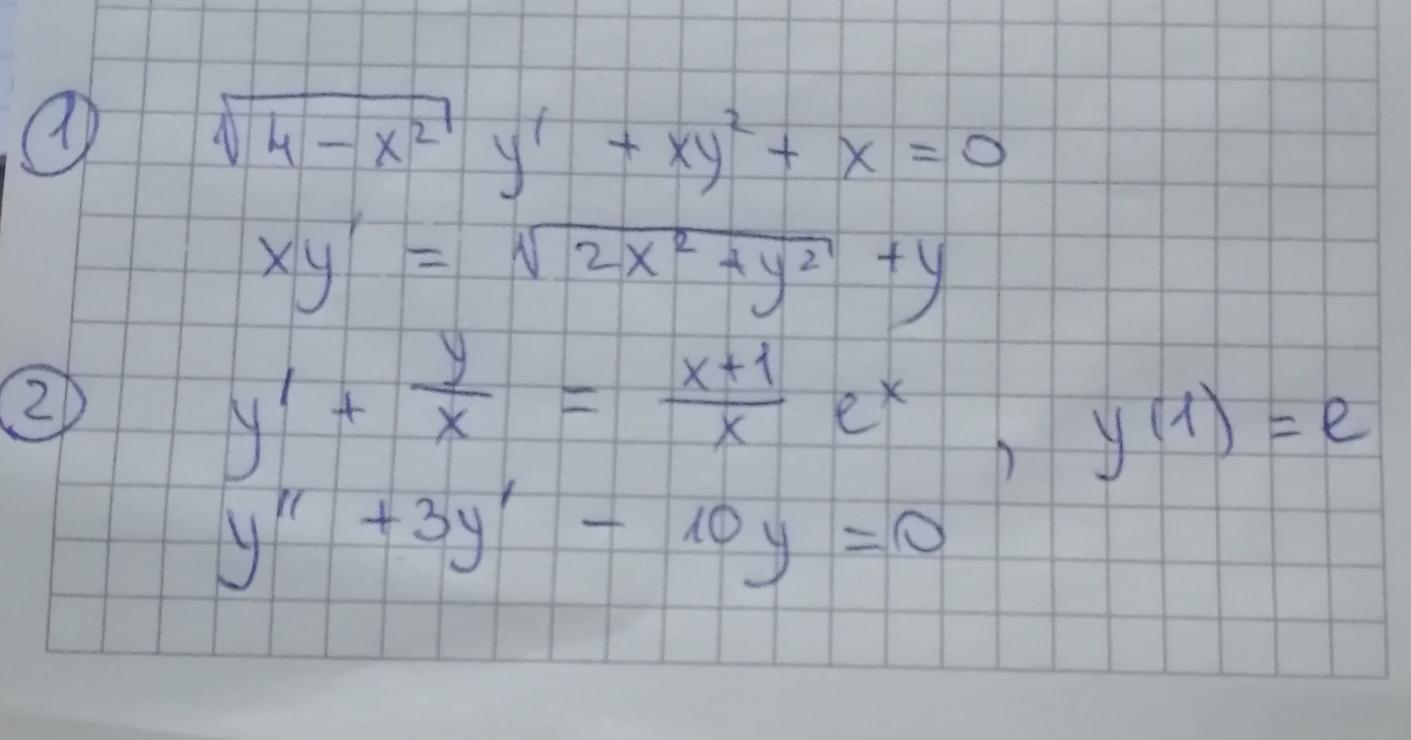 ① √(4 - x²) y' + xy² + x = 0
xy' = √(2x² + y²) + y
② y' + y/x = (x+1)/x eˣ , y(1) = e
y'' + 3y' - 10y = 0